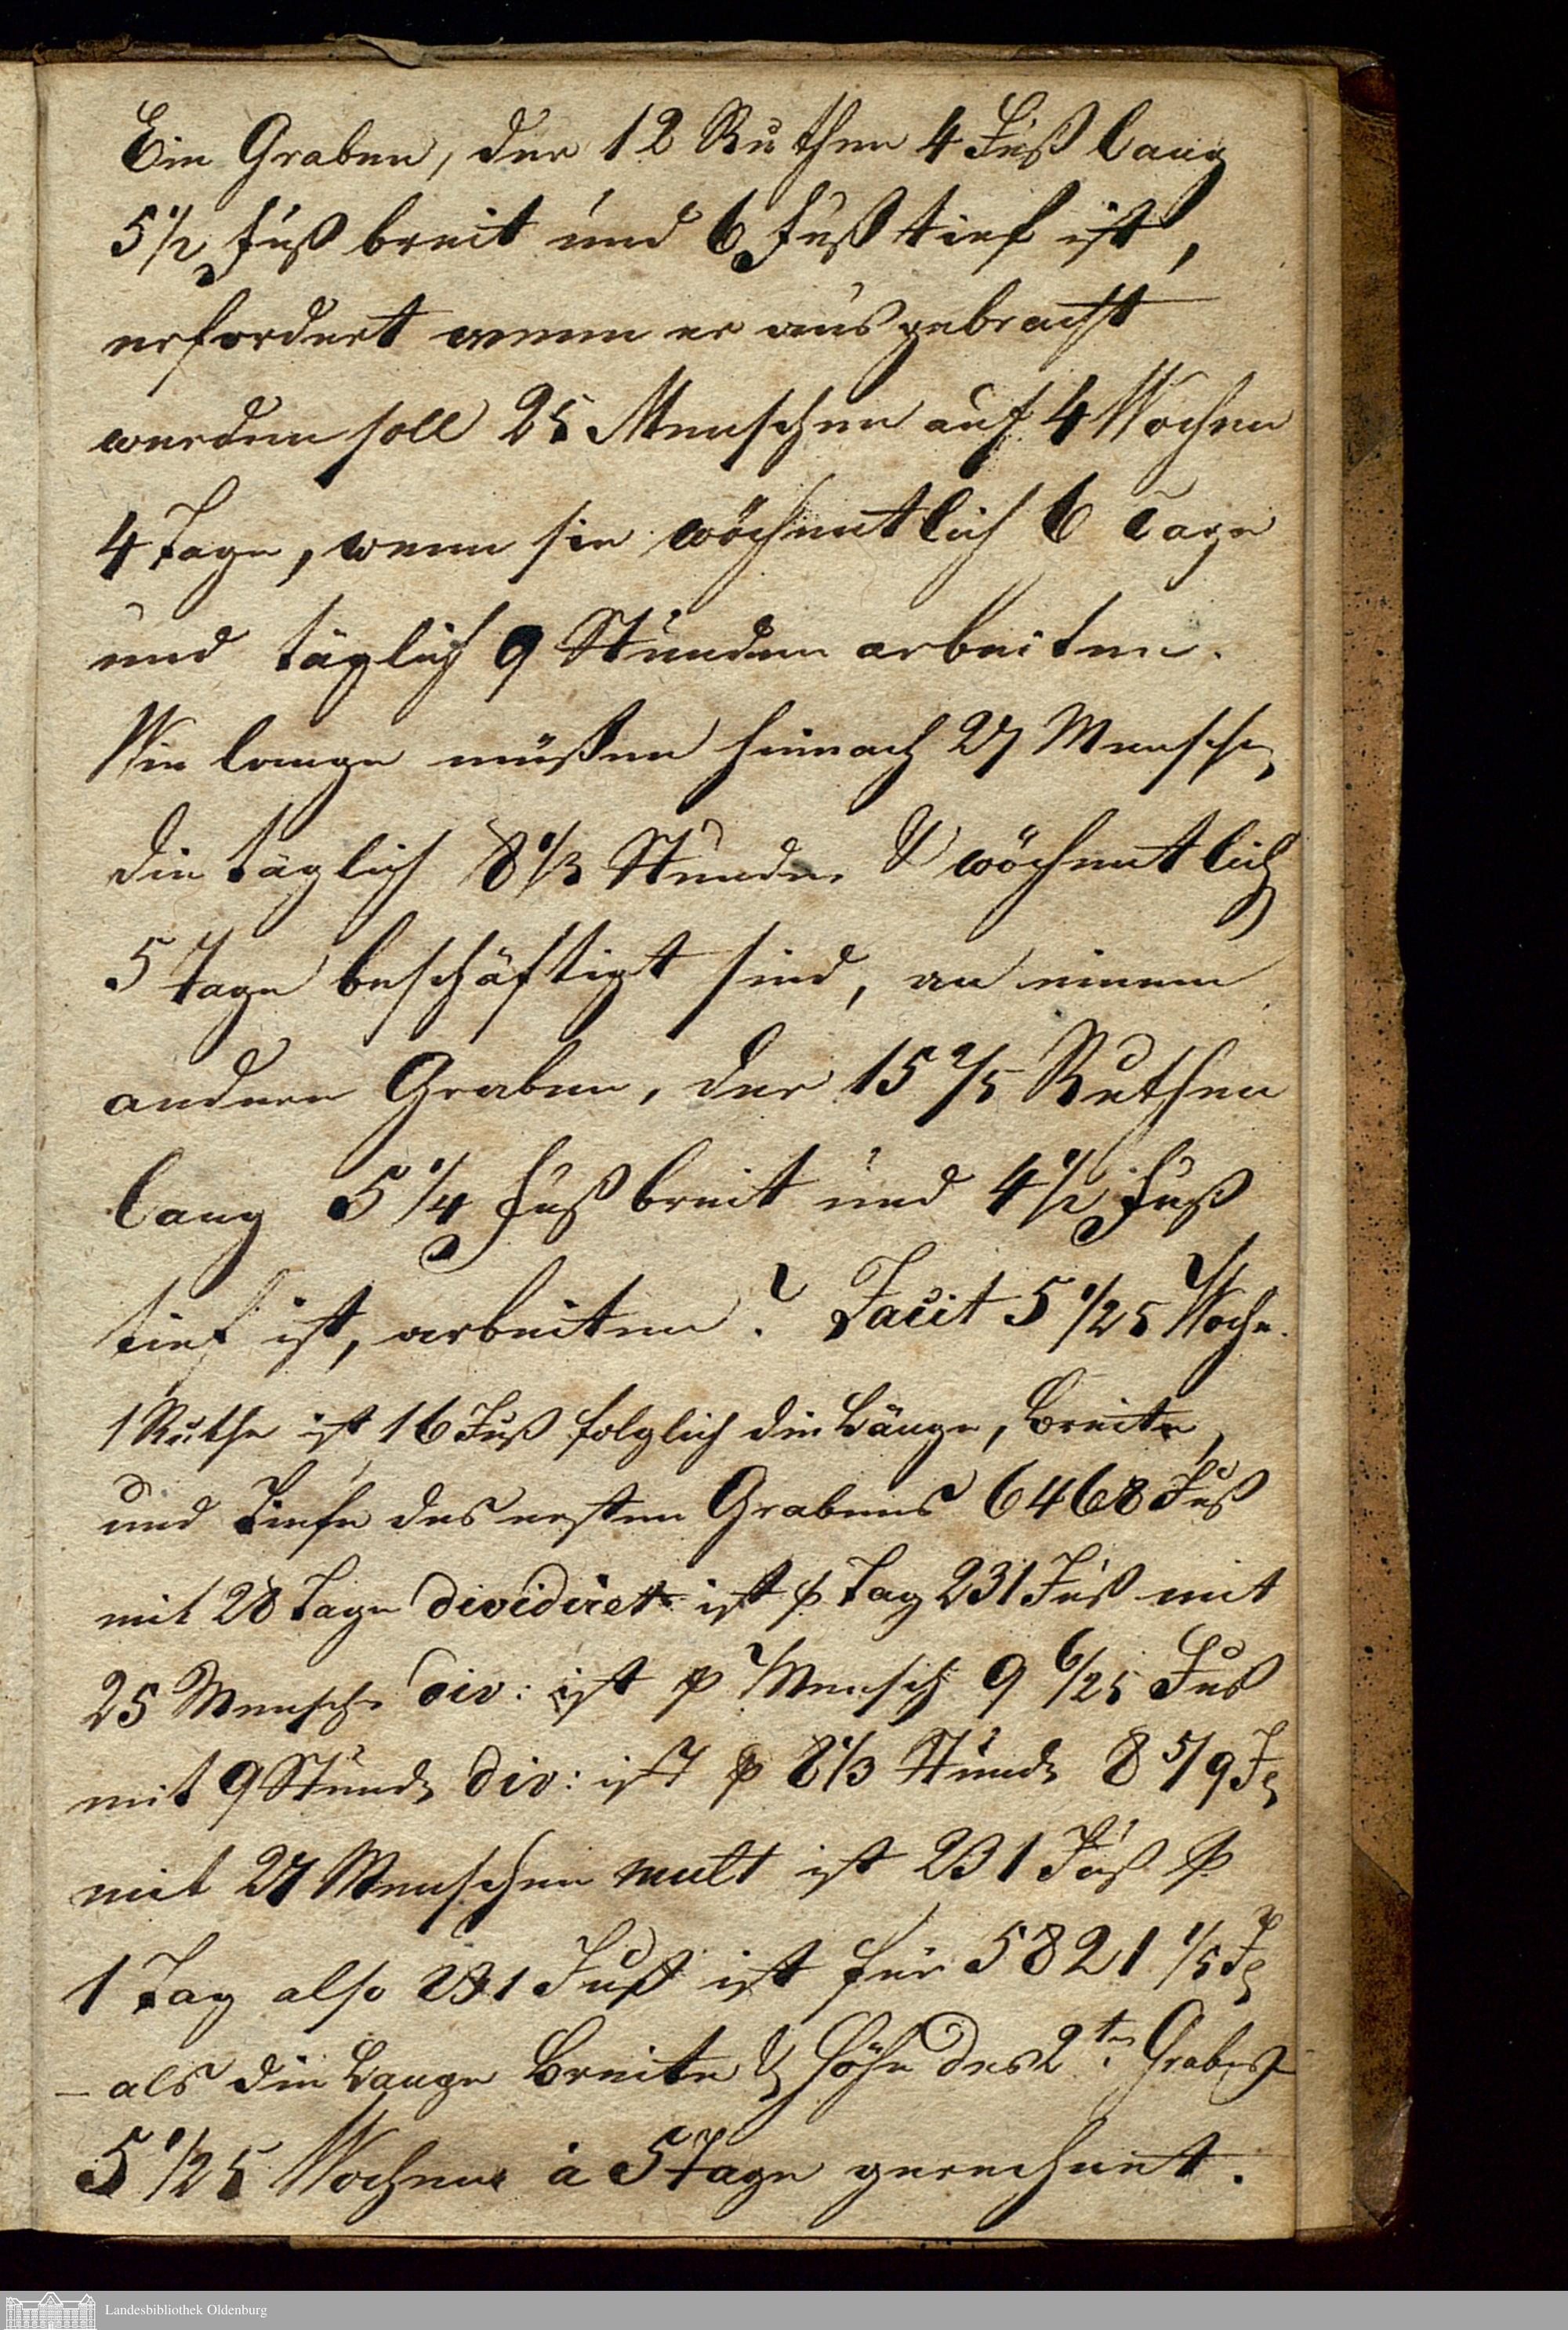 Ein Graben, der 12 Ruthen 4 Fuß lang
5 1/2 Fuß breit und 6 Fuß tief ist,
erfordert wenn er ausgebracht
werden soll 25 Menschen auf 4 Wochen
4 Tage, wenn sie wöchentlich 6 Tage
und täglich 9 Stunden arbeiten.
Wie lange müßen hienach 27 Mensche
die täglich 8 1/3 Stunden & wöchentlich
5 Tage beschäftigt sind, an einem
andern Graben, der 15 2/5 Ruthen
lang 5 1/4 Fuß breit und 4 1/2 Fuß
tief ist, arbeiten? Facit 5 1/25 Woche.
1 Ruthe ist 16 Fuß folglich die Länge, Breite,
und Tiefe des ersten Grabens 6468 Fuß
mit 28 Tage dividiret ist p Tag 231 Fuß mit
25 Mensche div: ist p Mensch 9 6/25 Fus
mit 9 Stunde div: ist p 8 1/3 Stunde 8 5/9 Fß
mit 27 Menschen mult ist 231 Fuß p
1 Tag also 231 Fuß ist für 5821 1/5 Fß
– als die Länge Breite & Höhe des 2ten Grabens –
5 1/25 Wochen à 5 Tage gerechnet.
Landesbibliothek Oldenburg